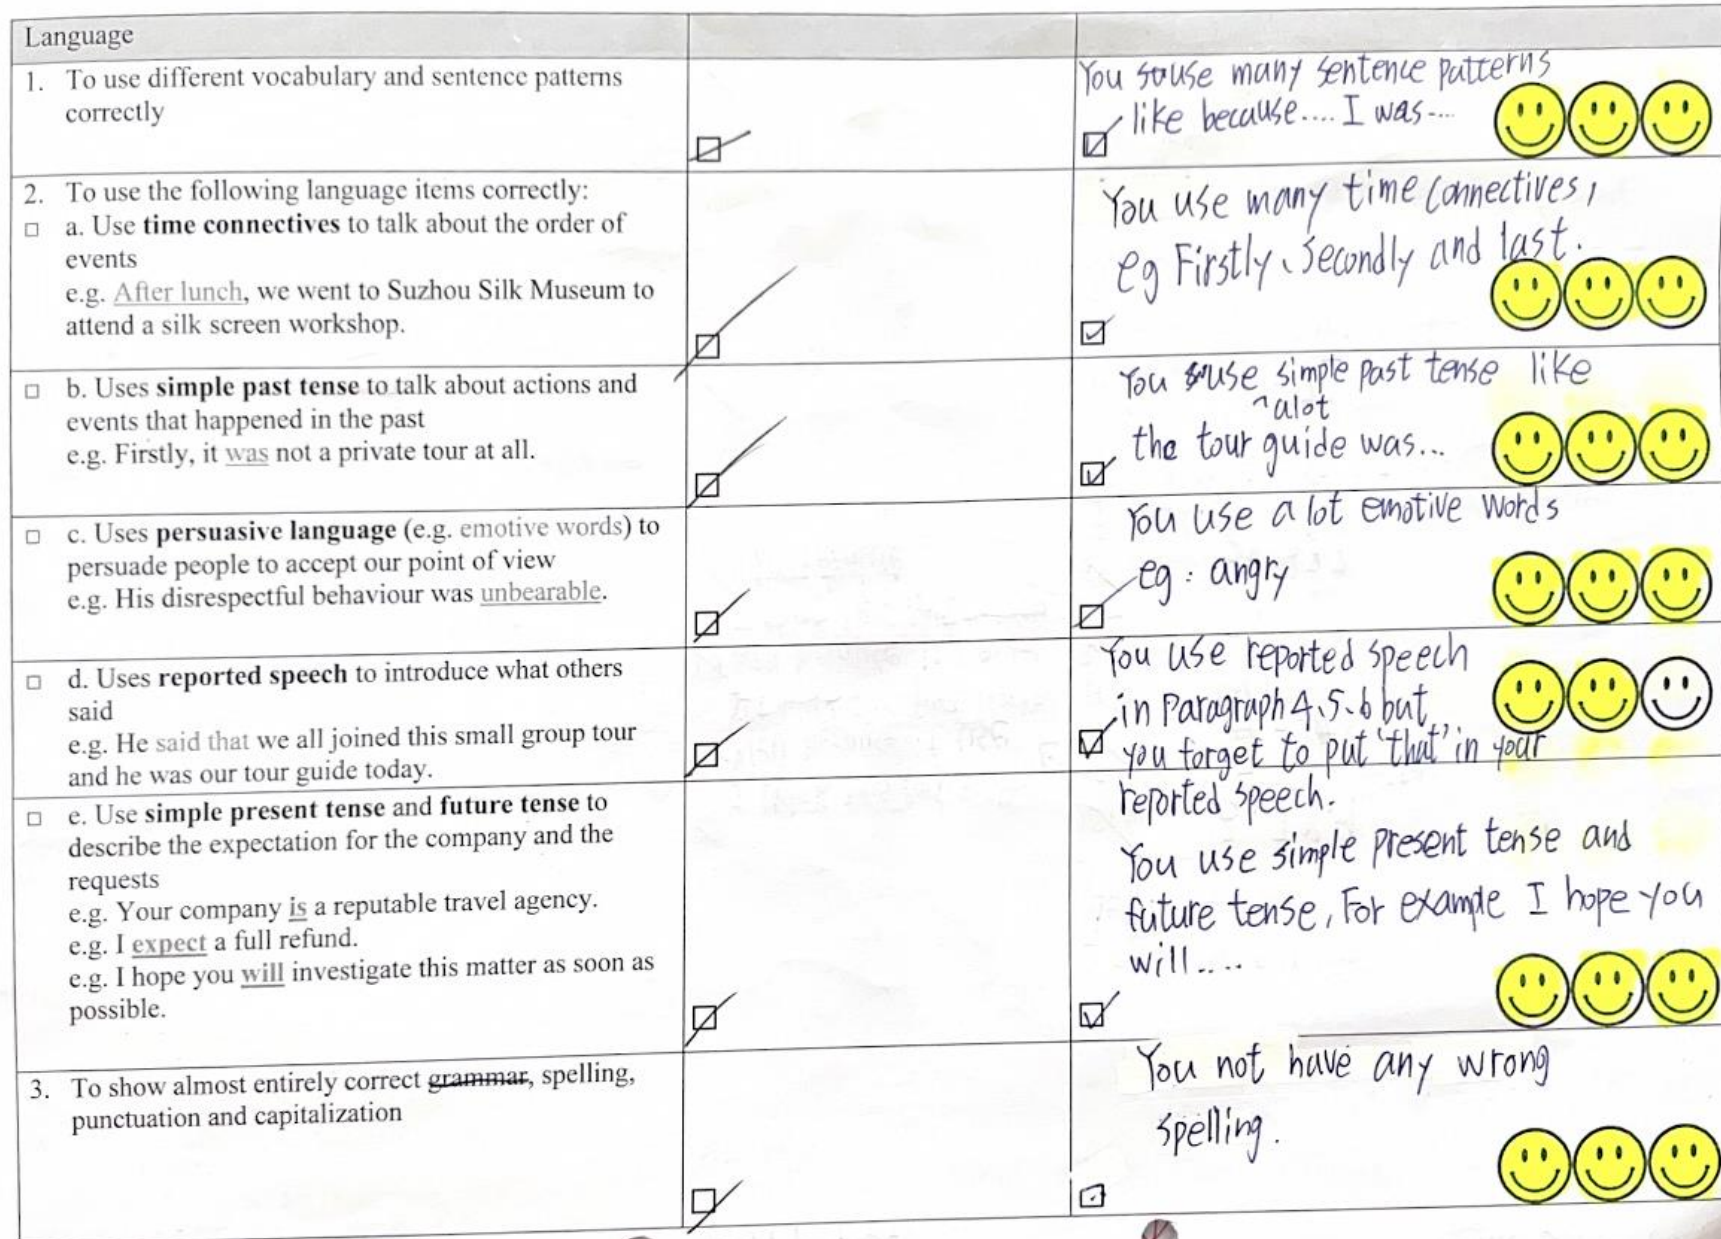 Language
1. To use different vocabulary and sentence patterns
correctly
You use many sentence patterns
like because.... I was....
2. To use the following language items correctly:
a. Use time connectives to talk about the order of
events
e.g. After lunch, we went to Suzhou Silk Museum to
attend a silk screen workshop.
You use many time connectives,
eg Firstly、Secondly and last.
b. Uses simple past tense to talk about actions and
events that happened in the past
e.g. Firstly, it was not a private tour at all.
You use simple past tense like
^alot
the tour guide was...
c. Uses persuasive language (e.g. emotive words) to
persuade people to accept our point of view
e.g. His disrespectful behaviour was unbearable.
You use a lot emotive words
eg: angry
d. Uses reported speech to introduce what others
said
e.g. He said that we all joined this small group tour
and he was our tour guide today.
You use reported speech
in Paragraph 4、5、6 but
you forget to put "that" in your
reported speech.
e. Use simple present tense and future tense to
describe the expectation for the company and the
requests
e.g. Your company is a reputable travel agency.
e.g. I expect a full refund.
e.g. I hope you will investigate this matter as soon as
possible.
You use simple present tense and
future tense, For example I hope you
will....
3. To show almost entirely correct grammar, spelling,
punctuation and capitalization
You not have any wrong
spelling.